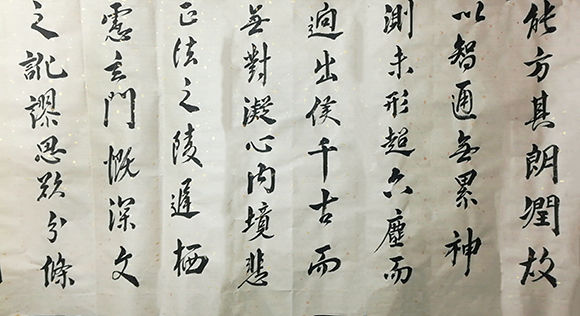 能方其朗潤故
以智通無累神
測未形超六塵而
迥出隻千古而
無對凝心內境悲
正法之陵遲栖
慮玄門慨深文
之訛謬思欲分條